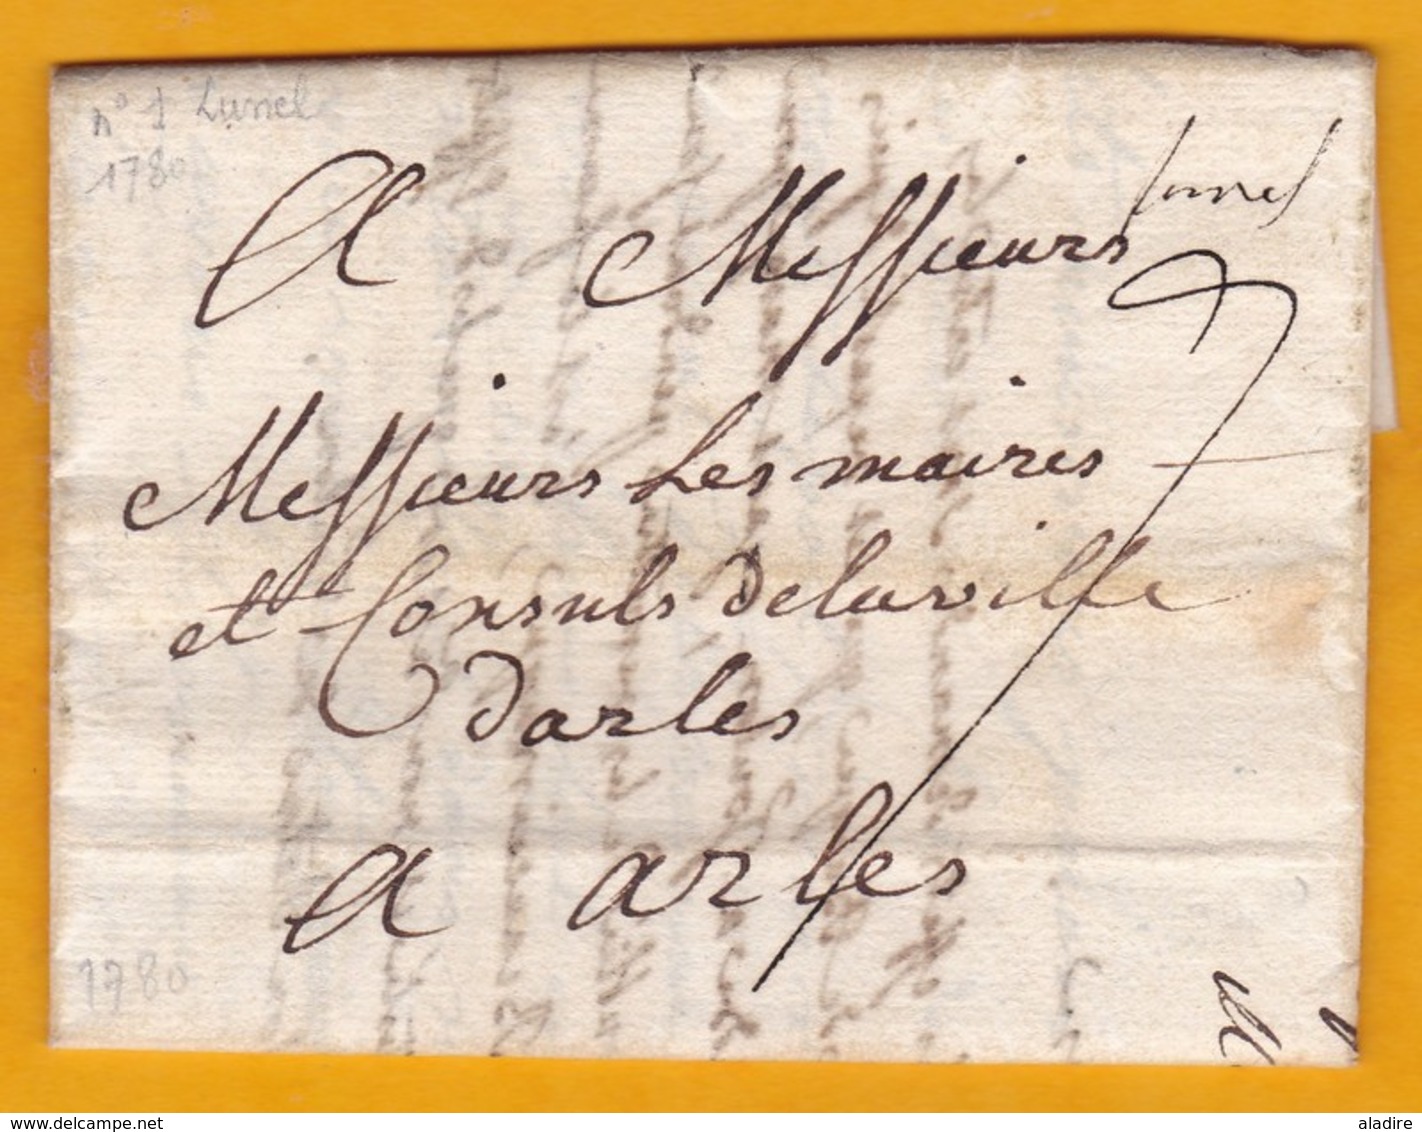 n° 1 Lunel
1780
lunel
A Messieurs
Messieurs Les maires
et Consuls delaville
darles
a arles
1780
www.delcampe.net
aladire